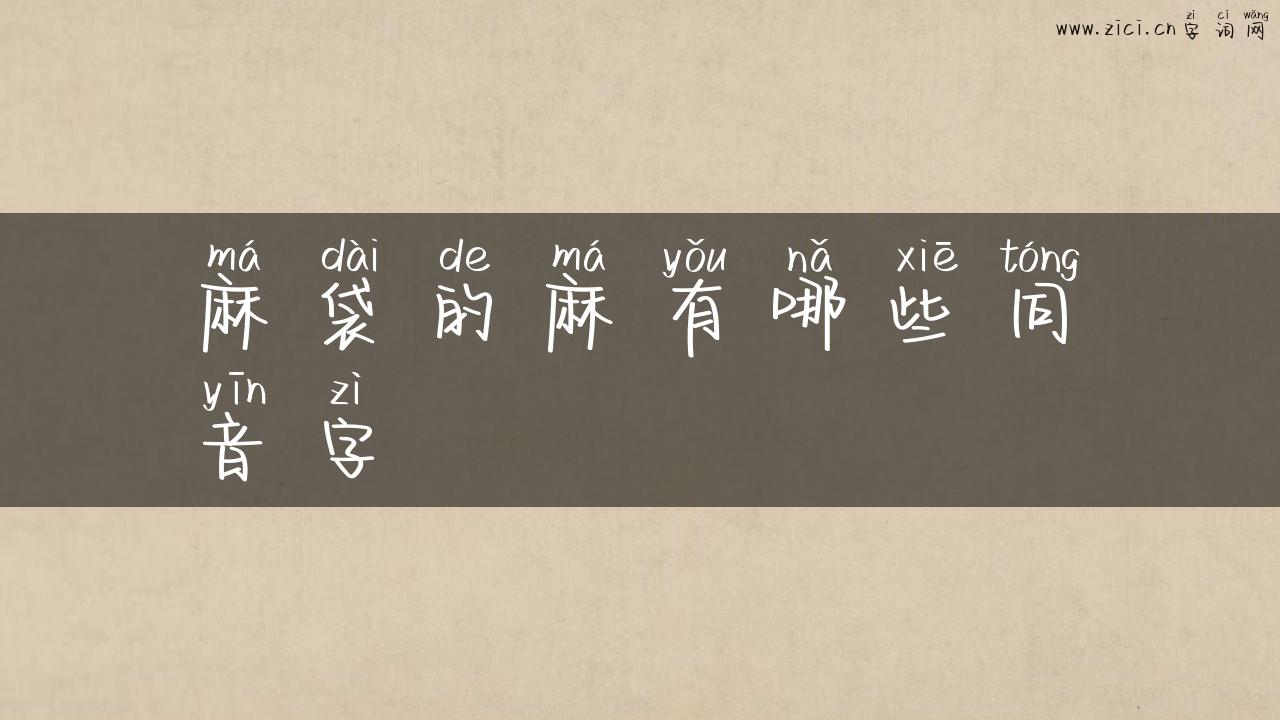 zì cí wǎng
www.zici.cn字词网
má dài de má yǒu nǎ xiē tóng
麻袋的麻有哪些同
yīn zì
音字